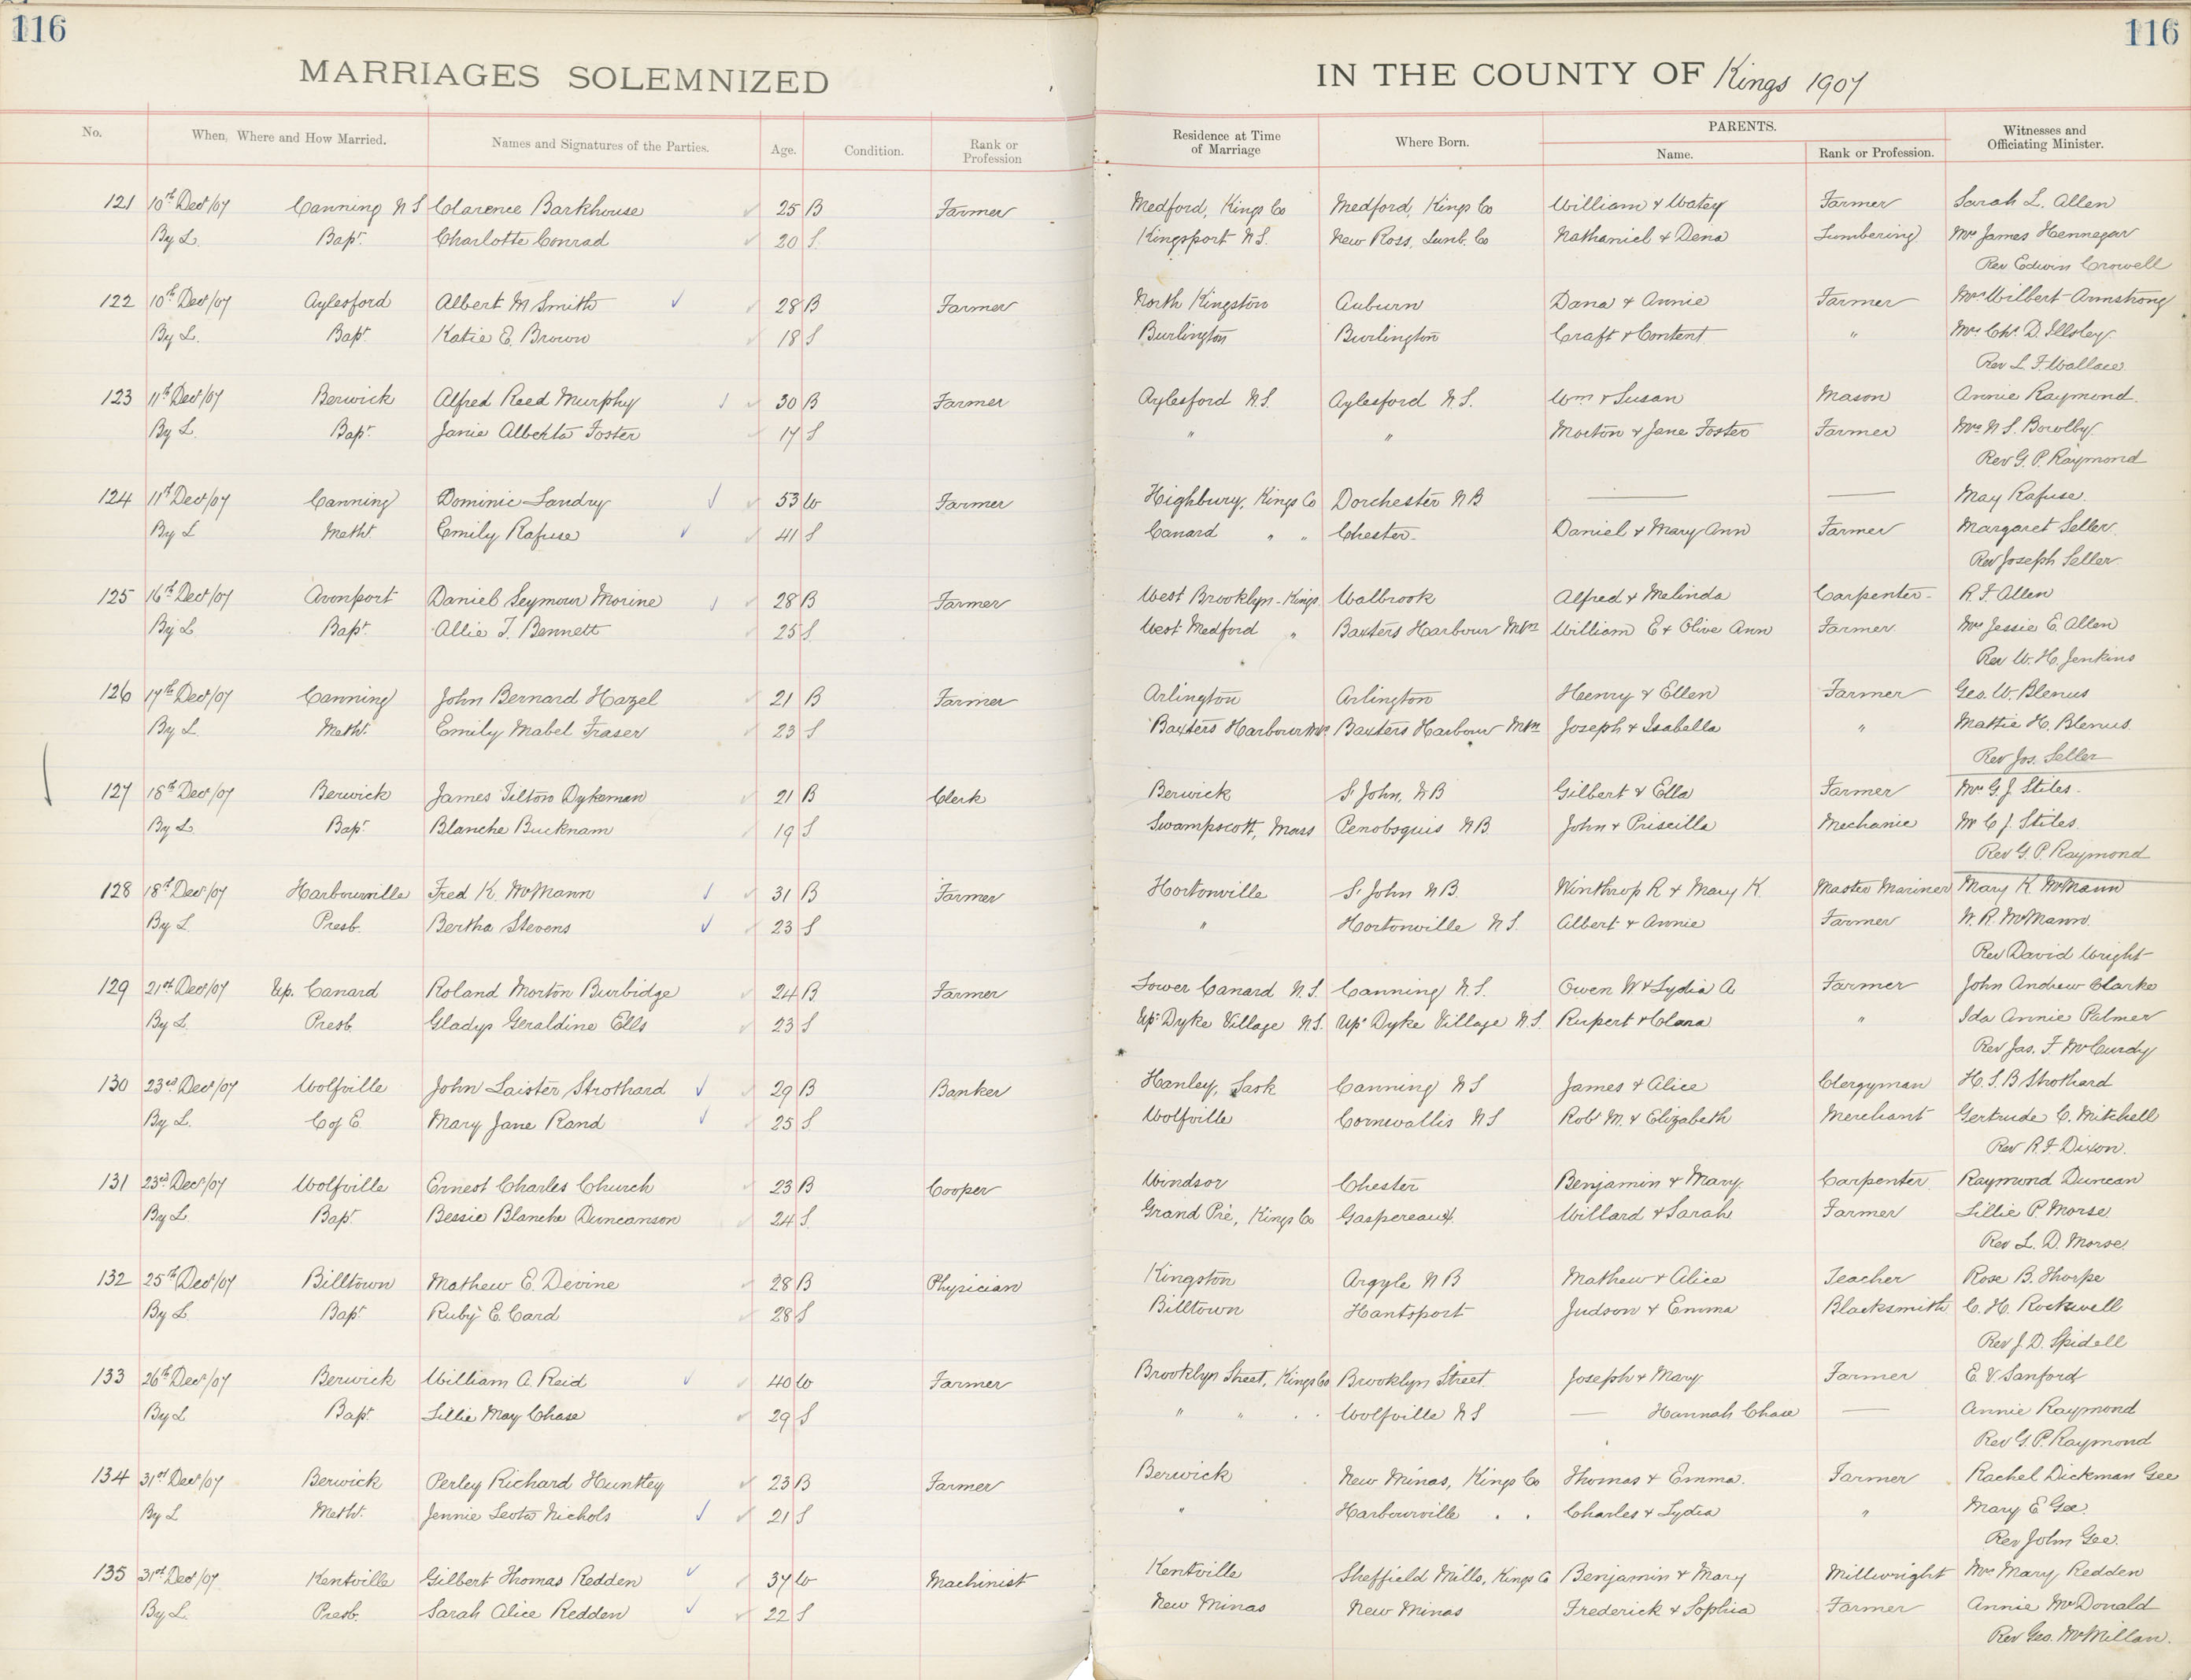 116
116
MARRIAGES SOLEMNIZED
IN THE COUNTY OF Kings 1907
No. When, Where and How Married. Names and Signatures of the Parties. Age. Condition. Rank or Profession Residence at Time of Marriage Where Born. PARENTS. Name. Rank or Profession. Witnesses and Officiating Minister.
121 10th Decr/07 Canning N S Clarence Barkhouse 25 B Farmer Medford, Kings Co Medford, Kings Co William & Watey Farmer Sarah L. Allen
By L. Bapt. Charlotte Conrad 20 S. Kingsport N.S. New Ross, Lunb. Co Nathaniel & Dena Lumbering Mrs James Hennegar
Rev Edwin Crowell
122 10th Decr/07 Aylesford Albert M Smith 28 B Farmer North Kingston Auburn Dana & Annie Farmer Mrs Wilbert Armstrong
By L. Bapt. Katie E. Brown 18 S Burlington Burlington Craft & Content " Mrs Chs. D. Illsley
Rev L. F. Wallace
123 11th Decr/07 Berwick Alfred Reed Murphy 30 B Farmer Aylesford N.S. Aylesford N.S. Wm & Susan Mason Annie Raymond.
By L. Bapt. Janie Alberta Foster 17 S " " Morton & Jane Foster Farmer Mrs N S. Bowlby
Rev G. P. Raymond
124 11th Decr/07 Canning Dominic Landry 53 W Farmer Highbury, Kings Co Dorchester N B — — May Rafuse.
By L Meth. Emily Rafuse 41 S Canard " " Chester. Daniel & Mary Ann Farmer Margaret Seller.
Rev Joseph Seller
125 16th Decr/07 Avonport Daniel Seymour Morine 28 B Farmer West Brooklyn - Kings Walbrook Alfred & Melinda Carpenter R. F. Allen
By L Bapt. Allie T. Bennett 25 S. West Medford " Baxters Harbour Mtn William E & Olive Ann Farmer Mrs Jessie E. Allen
Rev W. H. Jenkins
126 17th Decr/07 Canning John Bernard Hazel 21 B Farmer Arlington Arlington Henry & Ellen Farmer Geo. W. Blenus
By L. Meth. Emily Mabel Fraser 23 S Baxters Harbour Mtn Baxters Harbour Mtn Joseph & Isabella " Mattie H. Blenus.
Rev Jos. Seller
127 18th Decr/07 Berwick James Tilton Dykeman 21 B Clerk Berwick St John, N B Gilbert & Ella Farmer Mrs G. J. Stiles.
By L. Bapt. Blanche Bucknam 19 S Swampscott, Mass Penobsquis N B John & Priscilla Mechanic Mr C. J. Stiles.
Rev G. P. Raymond
128 18th Decr/07 Harbourville Fred K. McMann 31 B Farmer Hortonville St John N B. Winthrop R & Mary K. Master Mariner Mary K McMann
By L Presb. Bertha Stevens 23 S " Hortonville N S. Albert & Annie Farmer W. R. McMann.
Rev David Wright
129 21st Decr/07 Up. Canard Roland Morton Burbidge 24 B Farmer Lower Canard N.S. Canning N.S. Owen W & Lydia A Farmer John Andrew Clarke
By L. Presb. Gladys Geraldine Ells 23 S Upr Dyke Village N.S. Upr Dyke Village N.S. Rupert & Clara " Ida Annie Palmer
Rev Jas. F. McCurdy
130 23rd Decr/07 Wolfville John Laister Strothard 29 B Banker Hanley, Sask Canning N S James & Alice Clergyman H. S. B Strothard
By L. C of E. Mary Jane Rand 25 S. Wolfville Cornwallis N S Robt M. & Elizabeth Merchant Gertrude C. Mitchell
Rev R. F. Dixon.
131 23rd Decr/07 Wolfville Ernest Charles Church 23 B Cooper Windsor Chester Benjamin & Mary Carpenter Raymond Duncan
By L Bapt. Bessie Blanche Duncanson 24 S. Grand Pré, Kings Co Gaspereaux Willard & Sarah Farmer Lillie P. Morse
Rev L. D. Morse.
132 25th Decr/07 Billtown Mathew E. Devine 28 B Physician Kingston Argyle N B Mathew & Alice Teacher Rose B. Thorpe
By L. Bapt Ruby E. Card 28 S Billtown Hantsport Judson & Emma Blacksmith C. H. Rockwell
Rev J. D. Spidell
133 26th Decr/07 Berwick William A. Reid 40 W Farmer Brooklyn Street, Kings Co Brooklyn Street Joseph & Mary Farmer E. V. Sanford
By L Bapt. Lillie May Chase 29 S " " Wolfville N S — Hannah Chase — Annie Raymond
Rev G. P. Raymond
134 31st Decr/07 Berwick Perley Richard Huntley 23 B Farmer Berwick New Minas, Kings Co Thomas & Emma. Farmer Rachel Dickman Gee
By L Meth. Jennie Leota Nichols 21 S " Harbourville " " Charles & Lydia " Mary E Gee
Rev John Gee.
135 31st Decr/07 Kentville Gilbert Thomas Redden 37 W Machinist Kentville Sheffield Mills, Kings Co Benjamin & Mary Millwright Mrs Mary Redden
By L. Presb. Sarah Alice Redden 22 S New Minas New Minas Frederick & Sophia Farmer Annie McDonald
Rev Geo. McMillan.